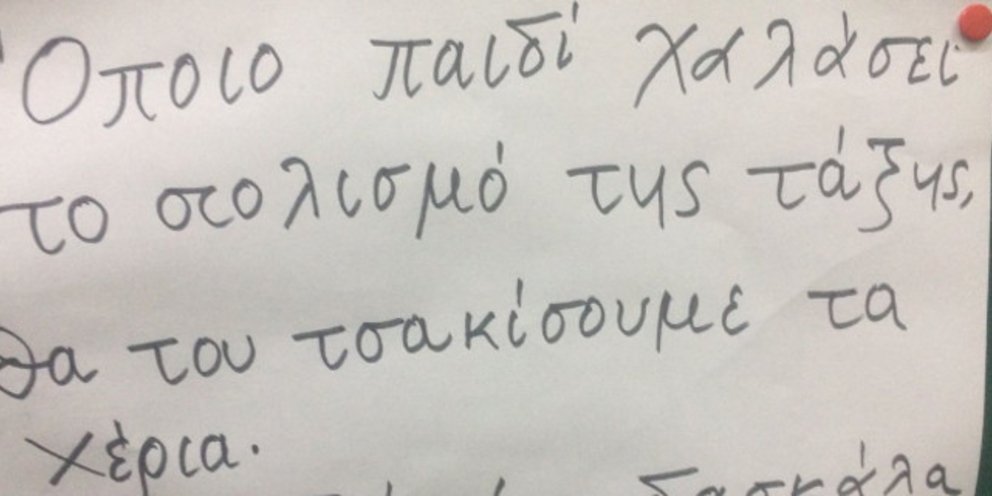 Όποιο παιδί χαλάσει
το στολισμό της τάξης,
θα του τσακίσουμε τα
χέρια.